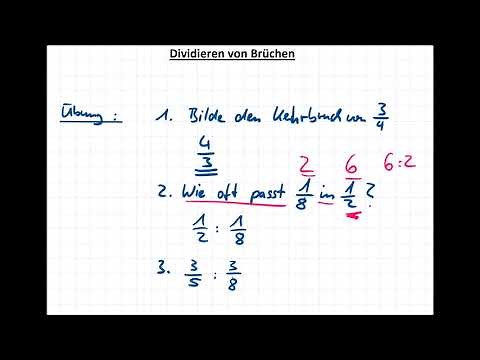 Dividieren von Brüchen
Übung: 1. Bilde den Kehrbruch von 3/4
4/3
2 6 6:2
2. Wie oft passt 1/8 in 1/2?
1/2 : 1/8
3. 3/5 : 3/8